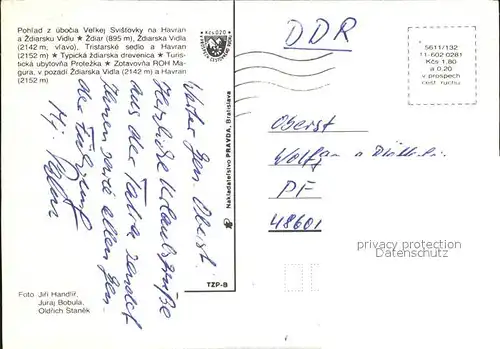 Pohľad z úbočia Veľkej Svišťovky na Havran
a Ždiarsku Vidlu ★ Ždiar (895 m), Ždiarska Vidla
(2142 m, vľavo), Tristarské sedlo a Havran
(2152 m) ★ Typická ždiarska drevenica ★ Turis-
tická ubytovňa Protežka ★ Zotavovňa ROH Ma-
gura, v pozadí Ždiarska Vidla (2142 m) a Havran
(2152 m)
Werter Gen. Oberst!
Herzliche Urlaubsgrüße
aus der Tatra sendet
Ihnen sowie allen Gen.
der
Foto Jiří Handlíř,
Juraj Bobula,
Oldřich Staněk
Kčs 0,20
Nakladateľstvo PRAVDA, Bratislava
TZP-B
DDR
5611/132
11-602-0281
Kčs 1,80
a 0,20
v prospech
cest. ruchu
Oberst
Wolfgang
PF
48601
privacy protection
Datenschutz